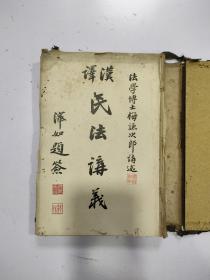 法學博士梅謙次郎講述
漢譯
民法講義
澤如題簽